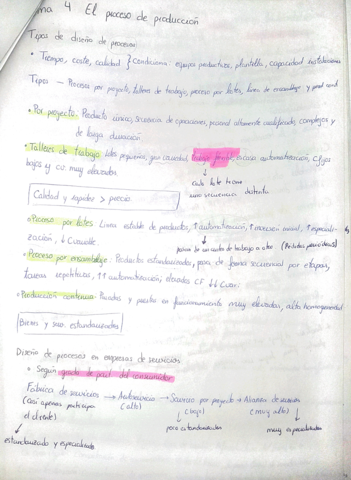 Tema 4. El proceso de producción
Tipos de diseño de procesos:
• Tiempo, coste, calidad } Condiciona: equipos productivos, plantilla, capacidad instalaciones
Tipos — Proceso por proyecto, talleres de trabajo, proceso por lotes, línea de ensamblaje y prod cont
• Por proyecto: Producto único, secuencia de operaciones, personal altamente cualificado, complejos y
de larga duración
• Talleres de trabajo: lotes pequeños, gran variedad, escasa automatización, CF
bajos y cv muy elevados
cada lote tiene
una secuencia distinta
Calidad y rapidez > precio
• Proceso por lotes: Línea estable de productos, ↑ automatización, ↑ inversión inicial, ↑ especiali-
zación, ↓ Cvariable
• Proceso por ensamblaje: Productos estandarizados, pasa de forma secuencial por etapas,
tareas repetitivas, ↑↑ automatización, elevados CF ↓↓ Cvar.
• Producción continua: Paradas y puestas en funcionamiento muy elevadas, alta homogeneidad
Bienes y serv. estandarizados
Diseño de procesos en empresas de servicios
• Según grado de part. del consumidor
Fábrica de servicios → Autoservicio → Servicio por proyecto → Alianza de servicios
(casi apenas participa
el cliente)
(alto)
(bajo)
(muy alto)
poco estandarizados
muy especializados
estandarizado y especializado